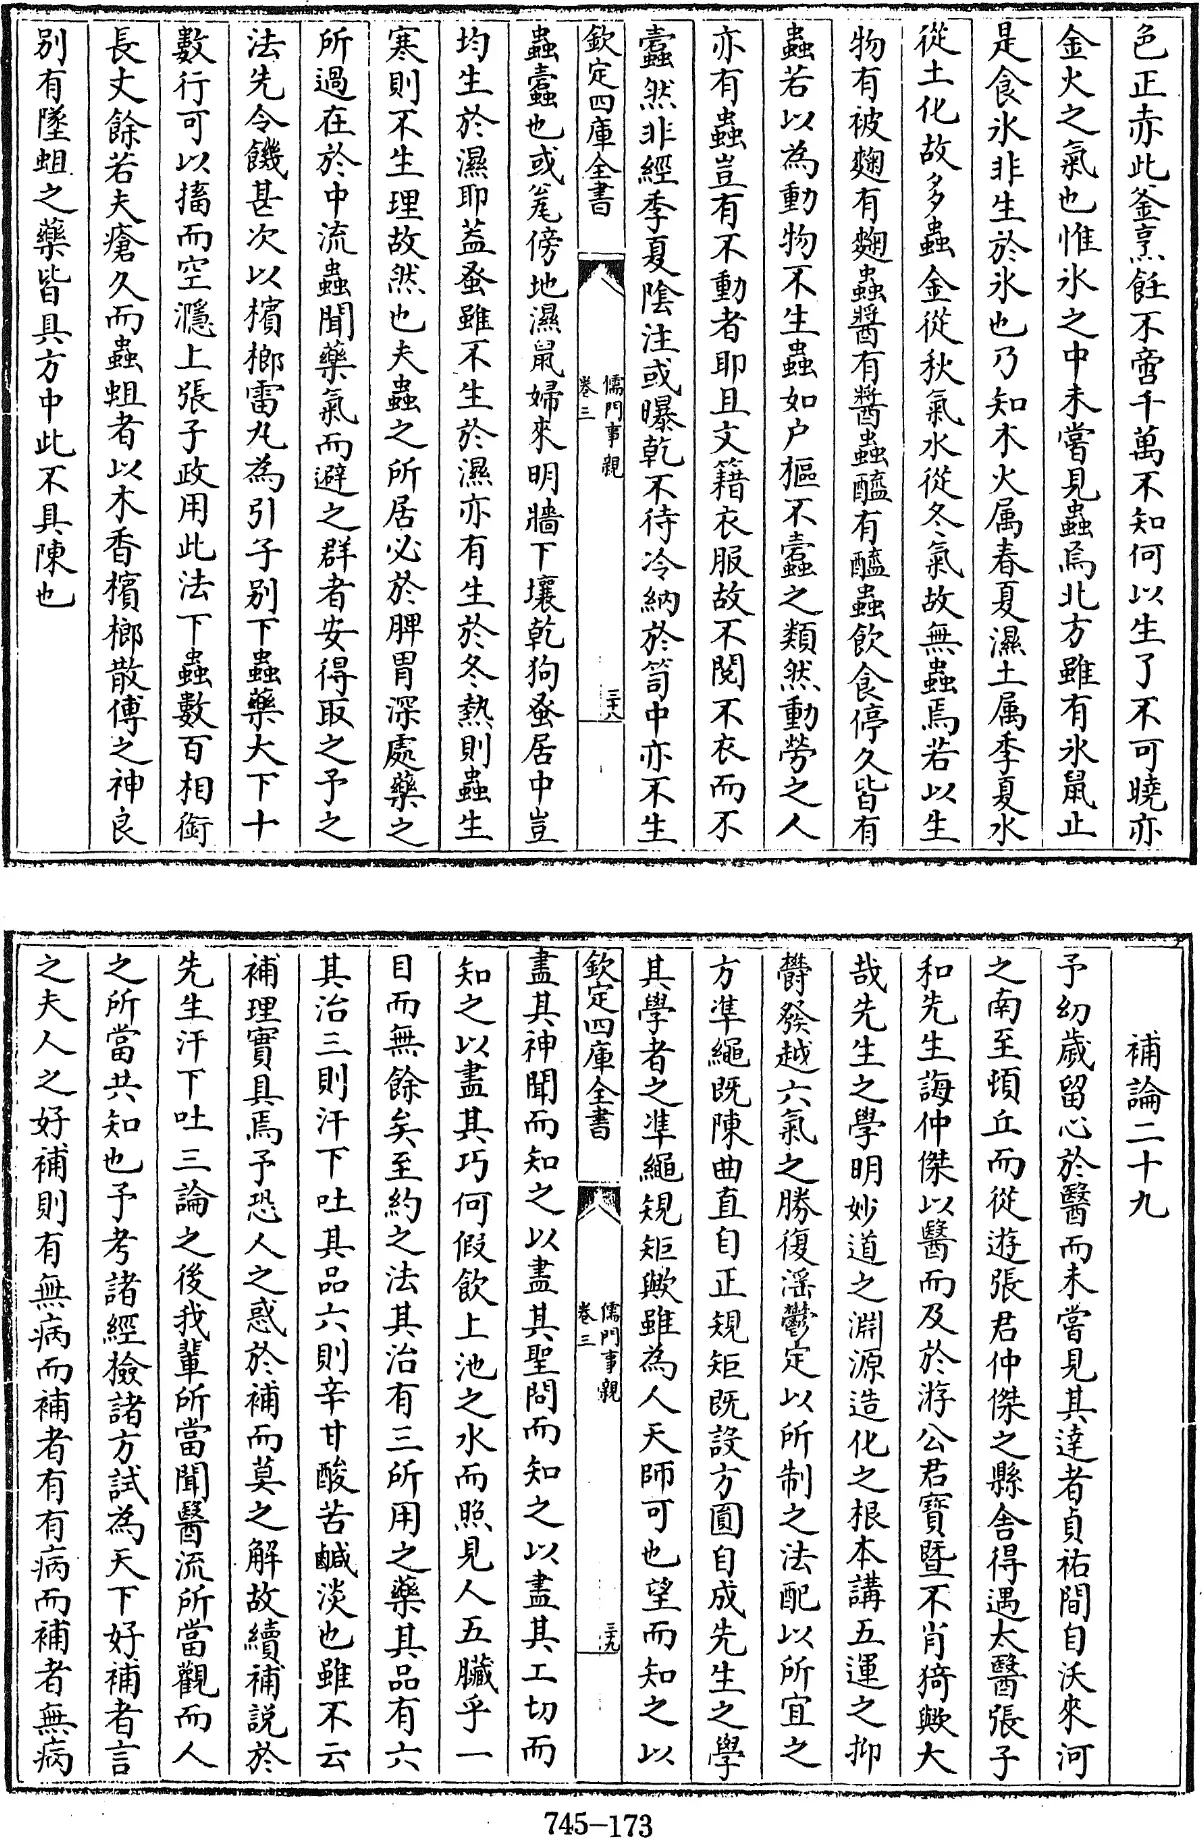 色正赤此釜烹飪不啻千萬不知何以生了不可曉亦
金火之氣也惟氷之中未嘗見蟲焉北方雖有氷鼠止
是食氷非生於氷也乃知木火属春夏濕土属季夏水
從土化故多蟲金從秋氣水從冬氣故無蟲焉若以生
物有被麴有麴蟲醬有醬蟲醯有醯蟲飲食停久皆有
蟲若以為動物不生蟲如户樞不蠹之類然動勞之人
亦有蟲豈有不動者耶且文籍衣服故不閱不衣而不
蠹然非經季夏陰注或曝乾不待冷納於笥中亦不生
欽定四庫全書
儒門事親
卷三
三十八
蟲蠹也或瓮傍地濕鼠婦來明牆下壤乾狗蚤居中豈
均生於濕耶葢蚤雖不生於濕亦有生於冬熱則蟲生
寒則不生理故然也夫蟲之所居必於脾胃深處藥之
所過在於中流蟲聞藥氣而避之群者安得取之予之
法先令饑甚次以檳榔雷丸為引子别下蟲藥大下十
數行可以搐而空濦上張子政用此法下蟲數百相銜
長丈餘若夫瘡久而蟲蛆者以木香檳榔散傅之神良
别有墜蛆之藥皆具方中此不具陳也
補論二十九
予幼歲留心於醫而未嘗見其達者貞祐間自沃來河
之南至頓丘而從遊張君仲傑之縣舍得遇太醫張子
和先生誨仲傑以醫而及於游公君寶暨不肖猗歟大
哉先生之學明妙道之淵源造化之根本講五運之抑
鬱發越六氣之勝復淫鬱定以所制之法配以所宜之
方準繩既陳曲直自正規矩既設方圓自成先生之學
其學者之準繩規矩歟雖為人天師可也望而知之以
欽定四庫全書
儒門事親
卷三
三十九
盡其神聞而知之以盡其聖問而知之以盡其工切而
知之以盡其巧何假飲上池之水而照見人五臟乎一
目而無餘矣至約之法其治有三所用之藥其品有六
其治三則汗下吐其品六則辛甘酸苦鹹淡也雖不云
補理實具焉予恐人之惑於補而莫之解故續補説於
先生汗下吐三論之後我輩所當聞醫流所當觀而人
之所當共知也予考諸經檢諸方試為天下好補者言
之夫人之好補則有無病而補者有有病而補者無病
745-173